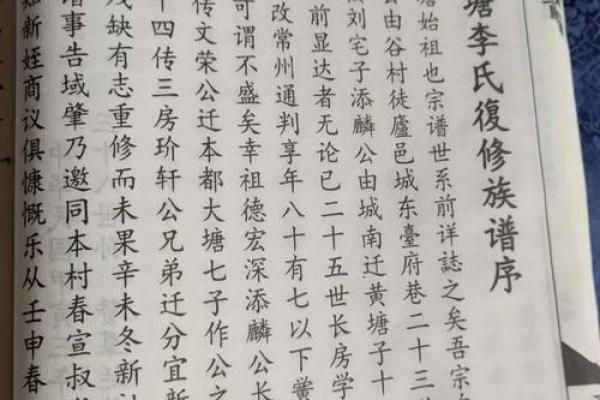 塘李氏復修族谱序
塘始祖也宗谱世系前详誌之矣吾宗
公由谷村徒廬邑城东臺府巷二十三
刘宅子添麟公由城南迁黄塘子十
前显达者无论已二十五世长房学
改常州通判享年八十有七以下黉
可谓不盛矣幸祖德宏深添麟公长
传文荣公迁本都大塘七子作公之
十四传三房玠轩公兄弟迁分宜新
残缺有志重修而未果辛未冬新
谱事告域肇乃邀同本村春宣叔
新姪商议俱慷慨乐从壬申春